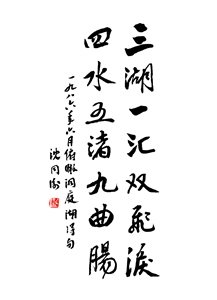 三湖一汇双飛淚
四水五渚九曲腸
一九八六年六月俯瞰洞庭湖得句
沈同衡